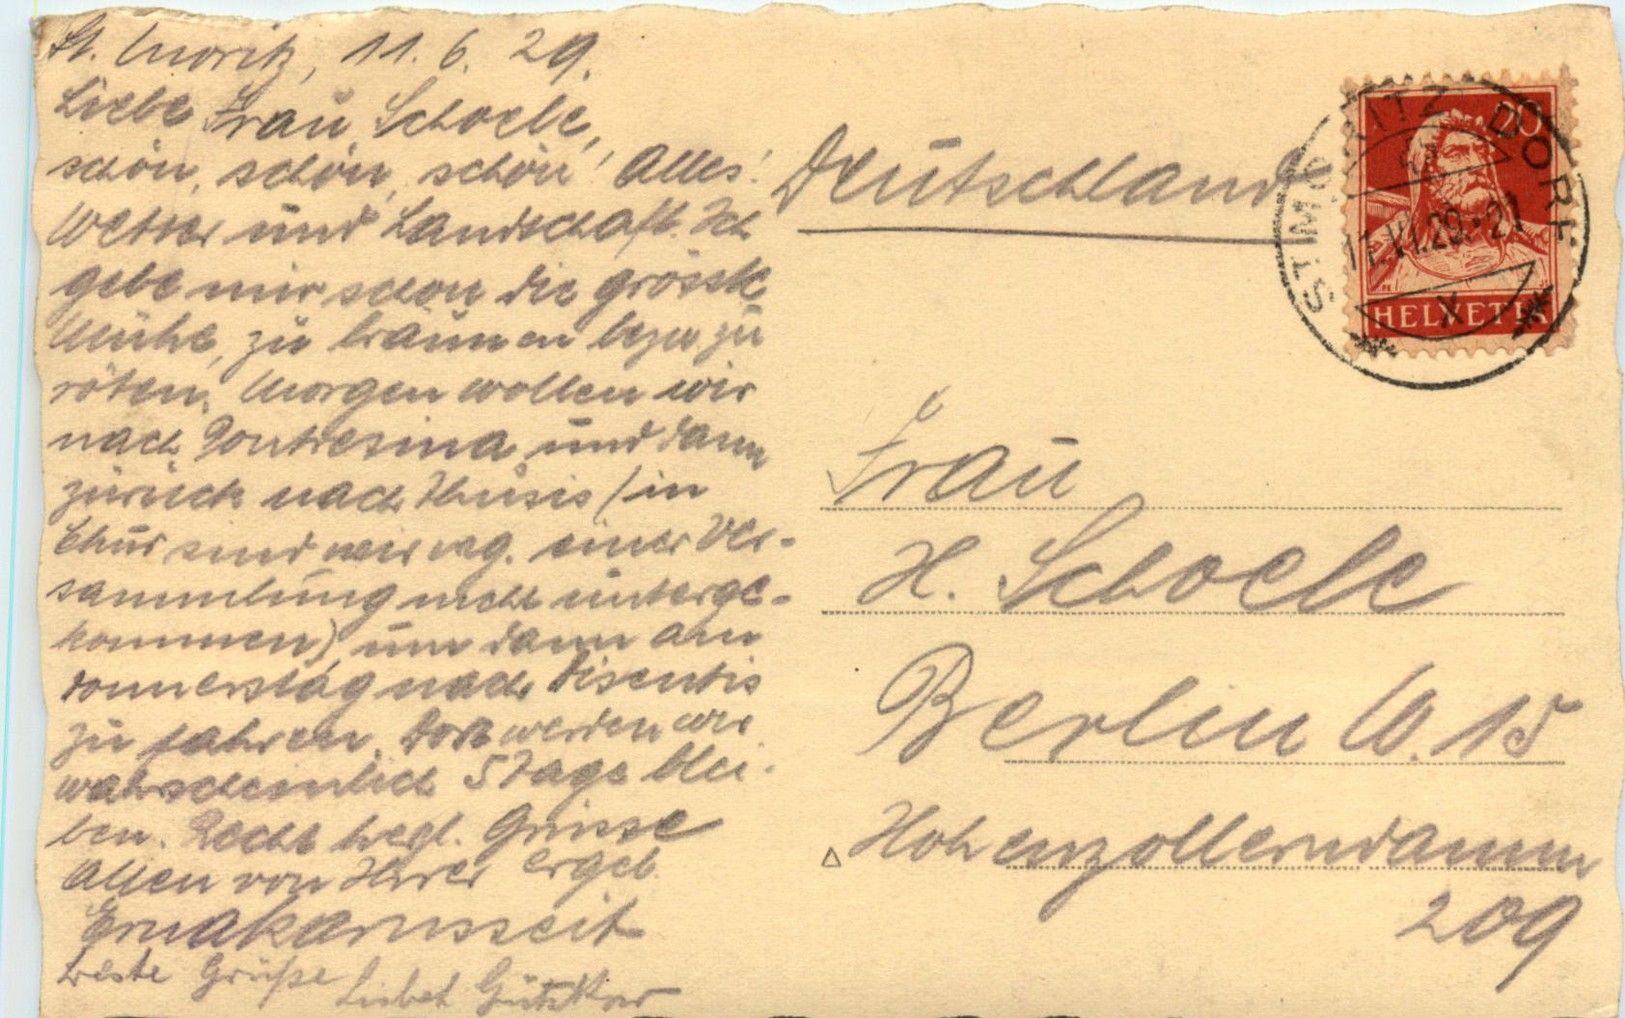 St. Moritz, 11. 6. 29.
Liebe Frau Schoele,
schön, schön, schön! Alles!
Wetter und Landschaft. Ich
gebe mir schon die grösste
Mühe, zu bräunen bezw. zu
röten. Morgen wollen wir
nach Pontresina und dann
zurück nach Thusis (in
Chur sind wir weg. einer Ver-
sammlung nicht unterge-
kommen), um dann am
Donnerstag nach Disentis
zu fahren. Dort werden wir
wahrscheinlich 5 Tage blei-
ben. Recht herzl. Grüsse
Allen von Ihrer ergeb.
Erna
beste Grüße Lisbet Gützkow
Deutschland
ST. MORITZ DORF
11.VI.29.-21
X
20
HELVETIA
Frau
H. Schoele
Berlin W. 15
Hohenzollerndamm
209